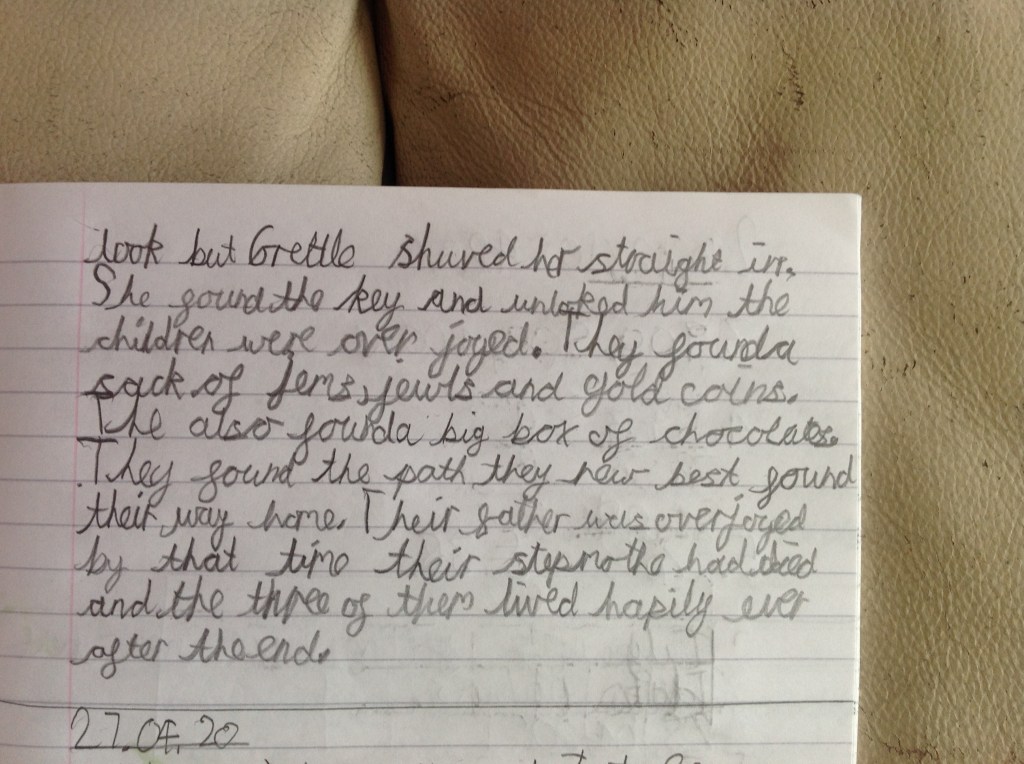 look but Grettle shuved her straight in.
She found the key and unloked him the
children were over joyed. They founda
sack of Jems, jewls and gold coins.
The also founda big box of chocolates.
They found the path they new best found
their way home. Their father was overjoyed
by that time their stepmothe had died
and the three of them lived hapily ever
after the end.
27.04.20